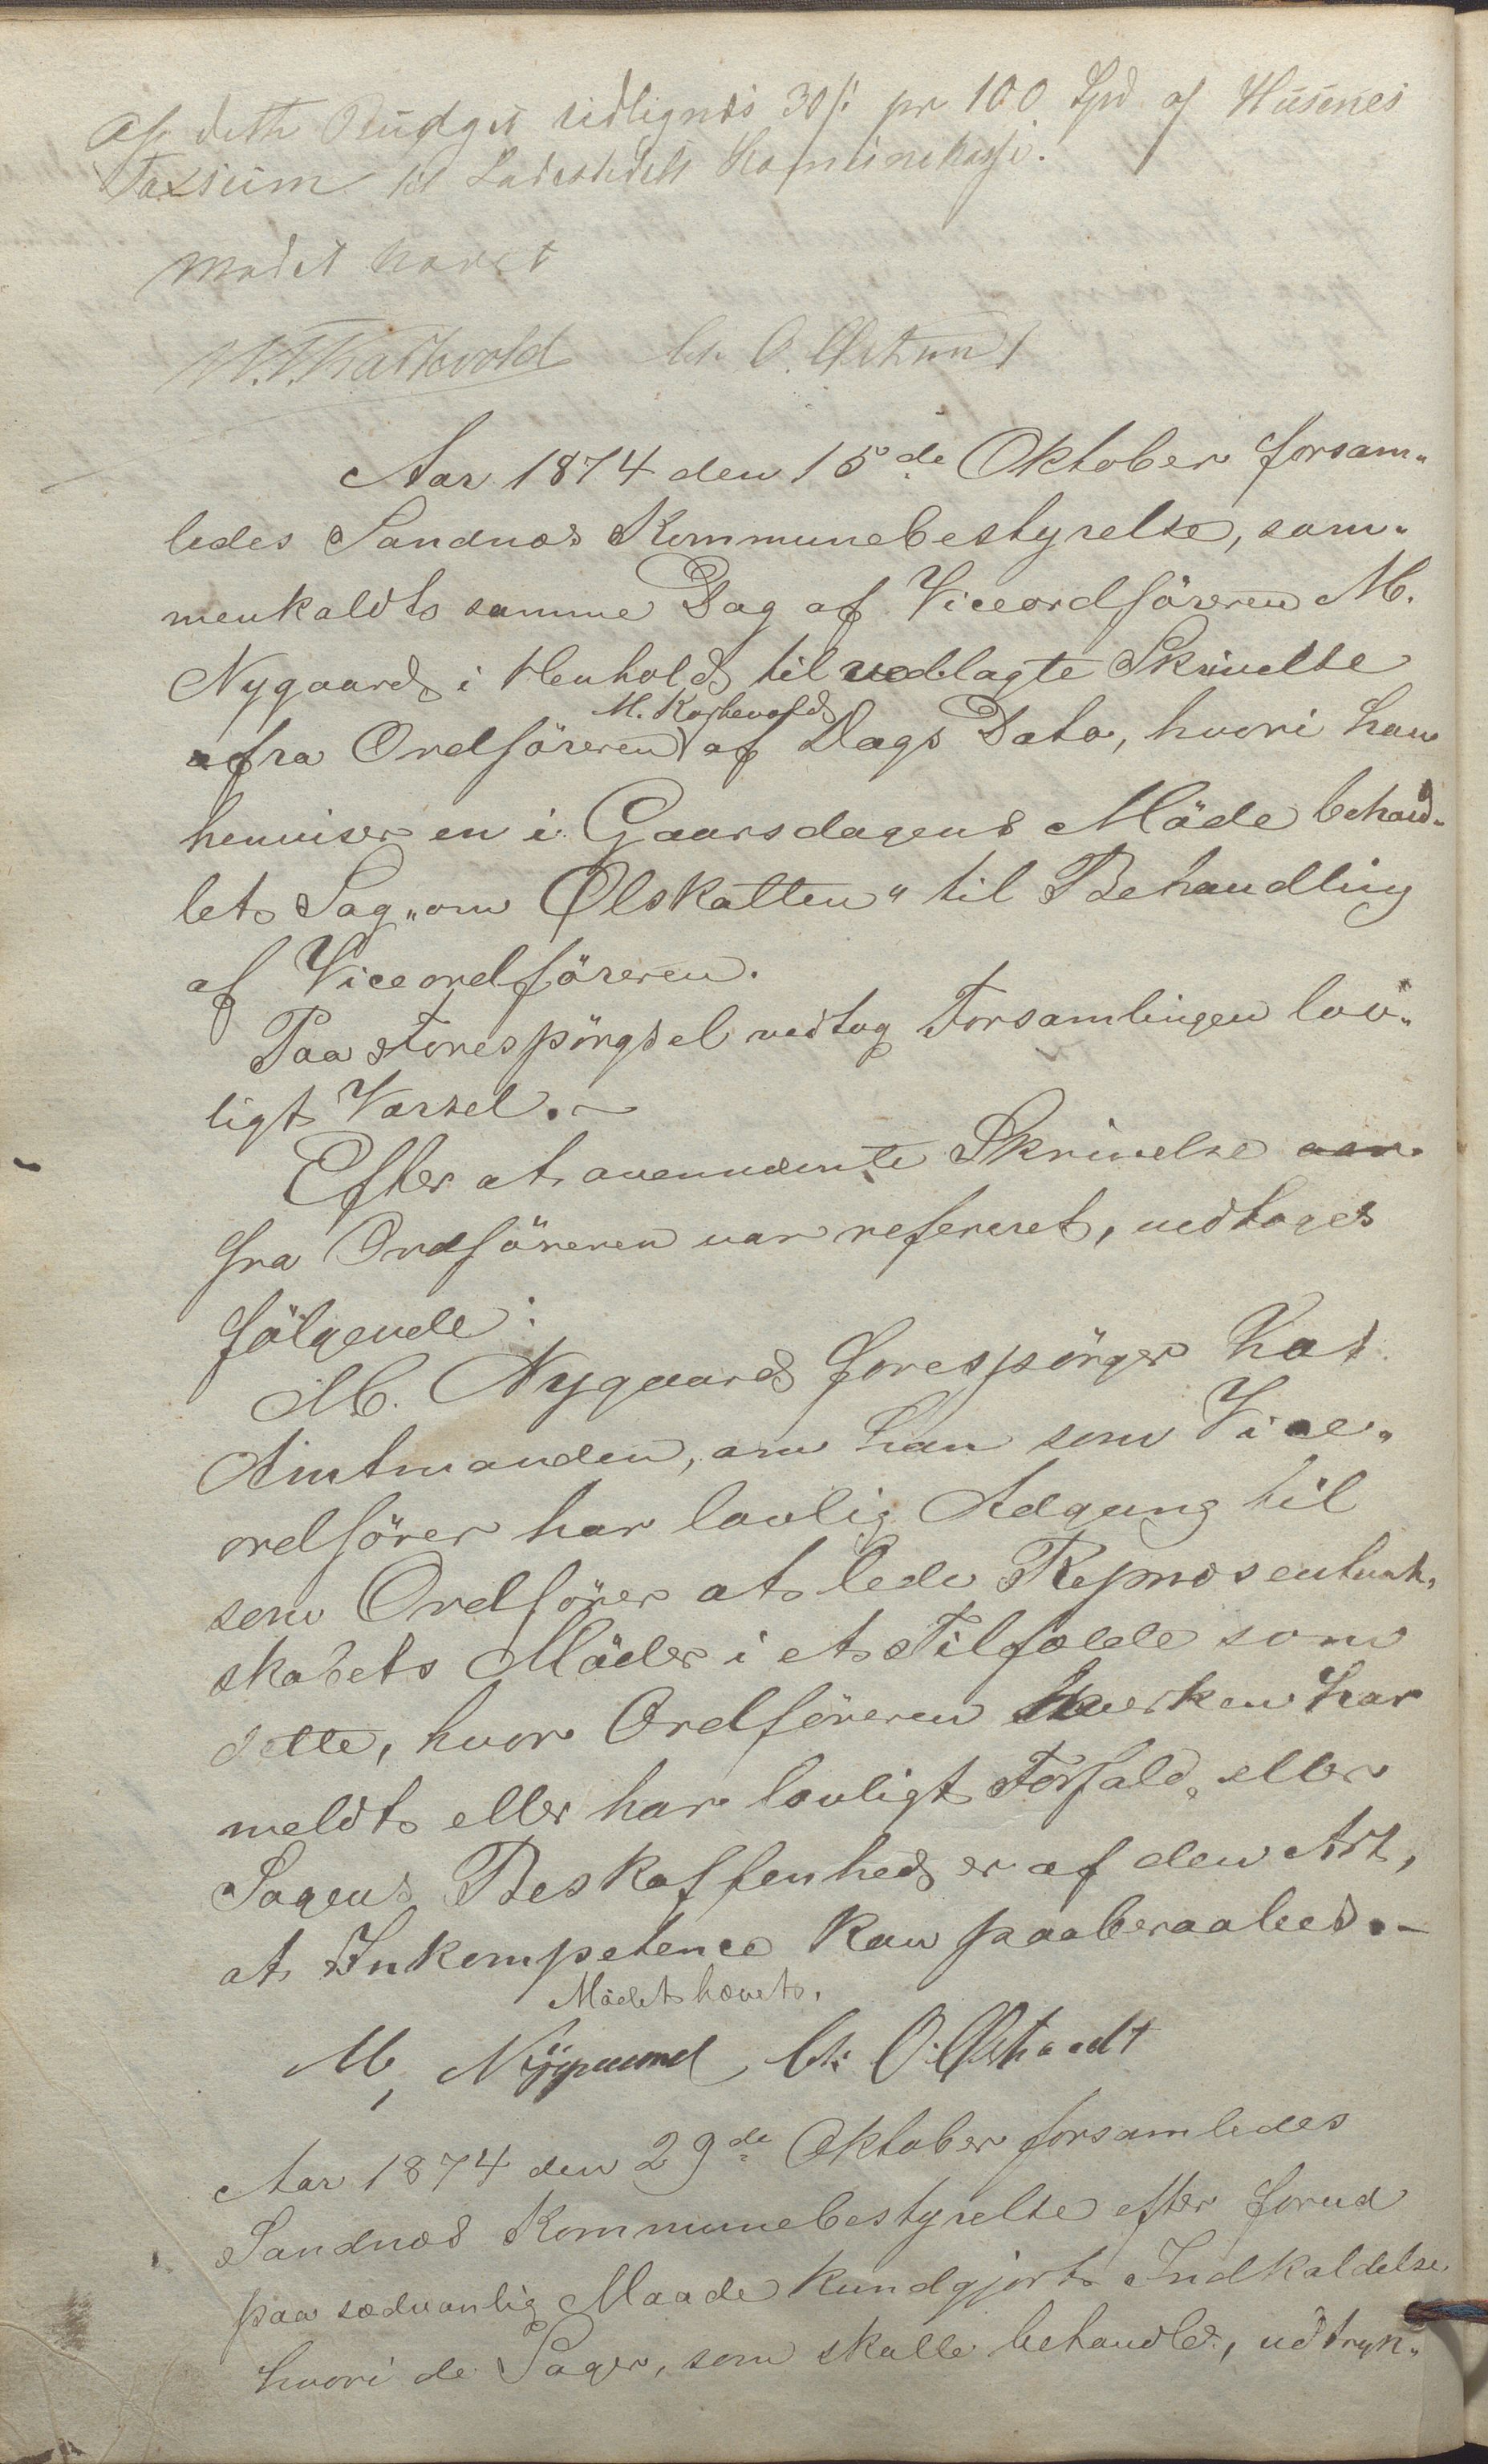 Af dette Budget udlignes 30 ß pr 100 Spd af Husenes
Taxsum til Ladestedets Kommunekasse.
Mødet hævet
Aar 1874 den 15de Oktober forsam„
ledes Sandnæs Kommunebestyrelse, sam„
menkaldt samme Dag af Viceordföreren M.
Nygaard i Henhold til vedlagte Skrivelse
fra Ordföreren M. Kastevold af Dags Dato, hvori han
henviser en i Gaarsdagens Möde behand„
let Sag „om Ølskatten" til Behandling
af Viceordföreren.
Paa Forespörgsel vedtog Forsamlingen lov„
ligt Varsel. –
Efter at ovennævnte Skrivelse
fra Ordföreren var refereret, vedtoges
fölgende:
M. Nygaard forespörger hos
Amtmanden, om han som Vice„
ordförer har lovlig Adgang til
som Ordförer at lede Repræsentant„
skabets Möder i et Tilfælde som
dette, hvor Ordföreren hverken har
meldt eller har lovligt Forfald, eller
Sagens Beskaffenhed er af den Art,
at Inkompetence kan paaberaabes. –
Mödet hævet.
M. Nygaard
Aar 1874 den 29de Oktober forsamledes
Sandnæs Kommunebestyrelse efter forud
paa sædvanlig Maade kundgjort Indkaldelse
hvori de Sager, som skulle behandles, udtryk„